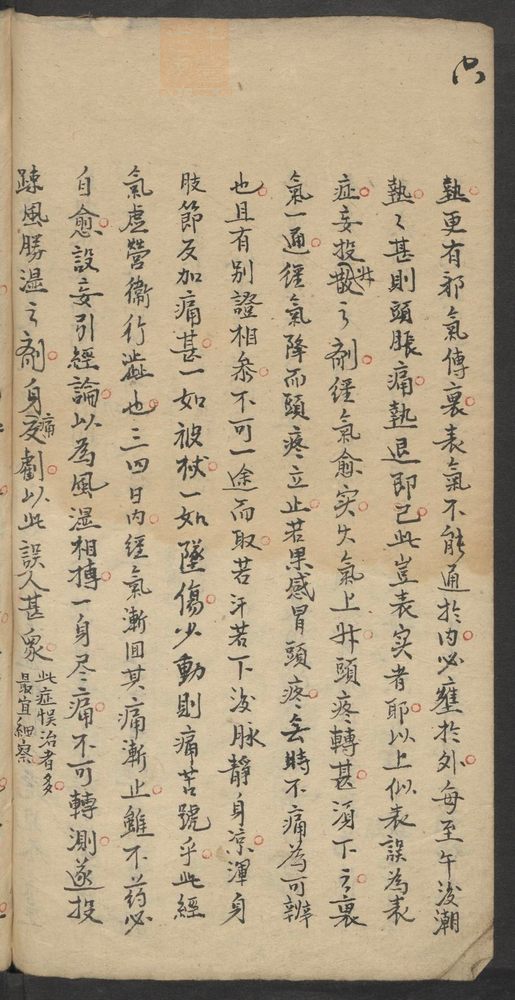 熱更有邪氣傳裏表氣不能通於内必壅於外每至午後潮
熱々甚則頭脹痛熱退即已此豈表实者耶以上似表誤為表
症妄投升散之剤經氣愈实火氣上升頭疼轉甚湏下之裏
氣一通經氣降而頭疼立止若果感冒頭疼無時不痛為可辨
也且有别證相叅不可一途而取若汗若下後脉靜身凉渾身
肢節反加痛甚一如被杖一如墜傷少動則痛苦號乎此經
氣虚營衞行澁也三四日内經氣漸回其痛漸止雖不药必
自愈設妄引經論以為風湿相摶一身尽痛不可轉測遂投
踈風勝湿之剤身痛反劇以此誤人甚衆
此症悮治者多
最宜細察